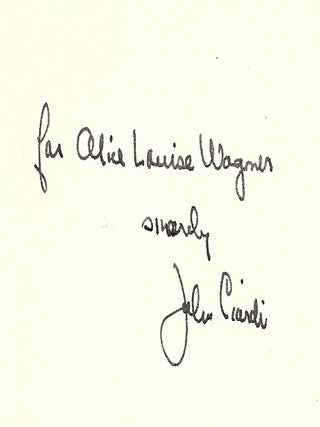 for Alice Louise Wagner
sincerely
John Ciardi